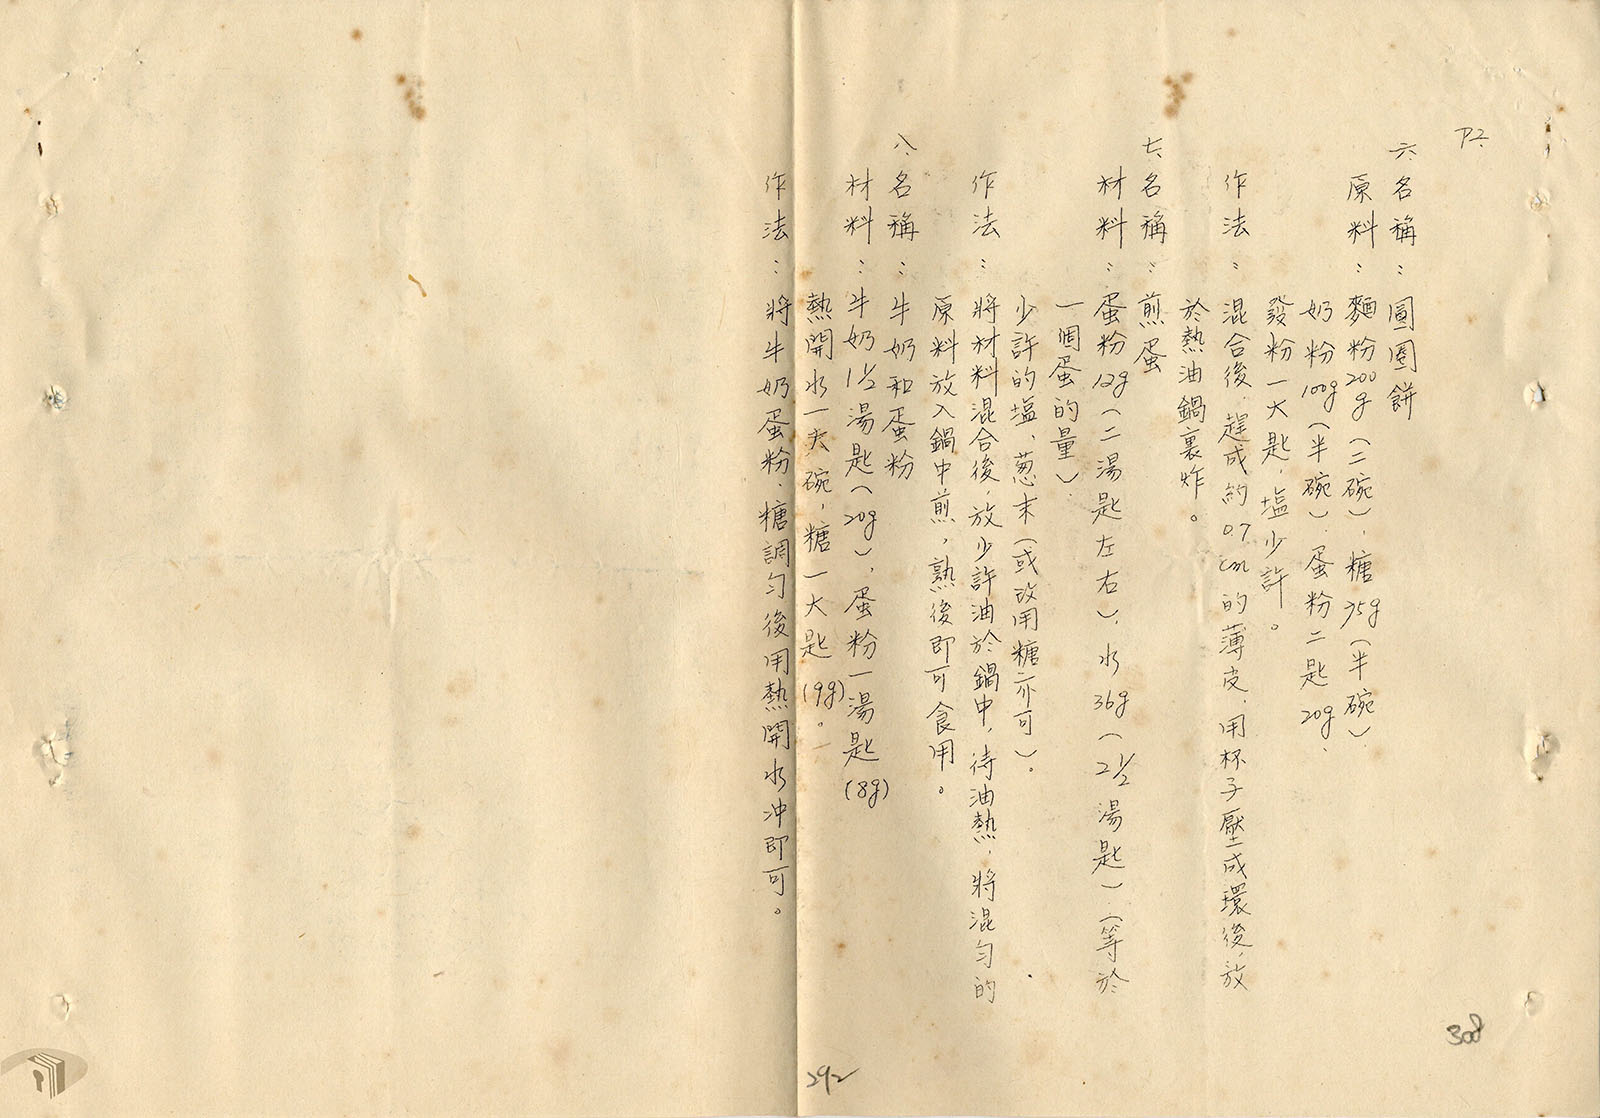 P2
六、名稱：圓圈餅
原料：麵粉200g（二碗），糖75g（半碗）
奶粉100g（半碗），蛋粉二匙20g，
發粉一大匙，塩少許。
作法：混合後，趕成約0.7cm的薄皮，用杯子壓成環後，放
於熱油鍋裏炸。
七、名稱：煎蛋
材料：蛋粉12g（二湯匙左右），水36g（2 1/2湯匙）（等於
一個蛋的量）
少許的塩、葱末（或改用糖亦可）。
作法：將材料混合後，放少許油於鍋中，待油熱，將混勻的
原料放入鍋中煎，熟後即可食用。
八、名稱：牛奶和蛋粉
材料：牛奶1 1/2湯匙（20g），蛋粉一湯匙（8g）
熱開水一大碗，糖一大匙（9g）。
作法：將牛奶蛋粉、糖調勻後用熱開水沖即可。
308
292